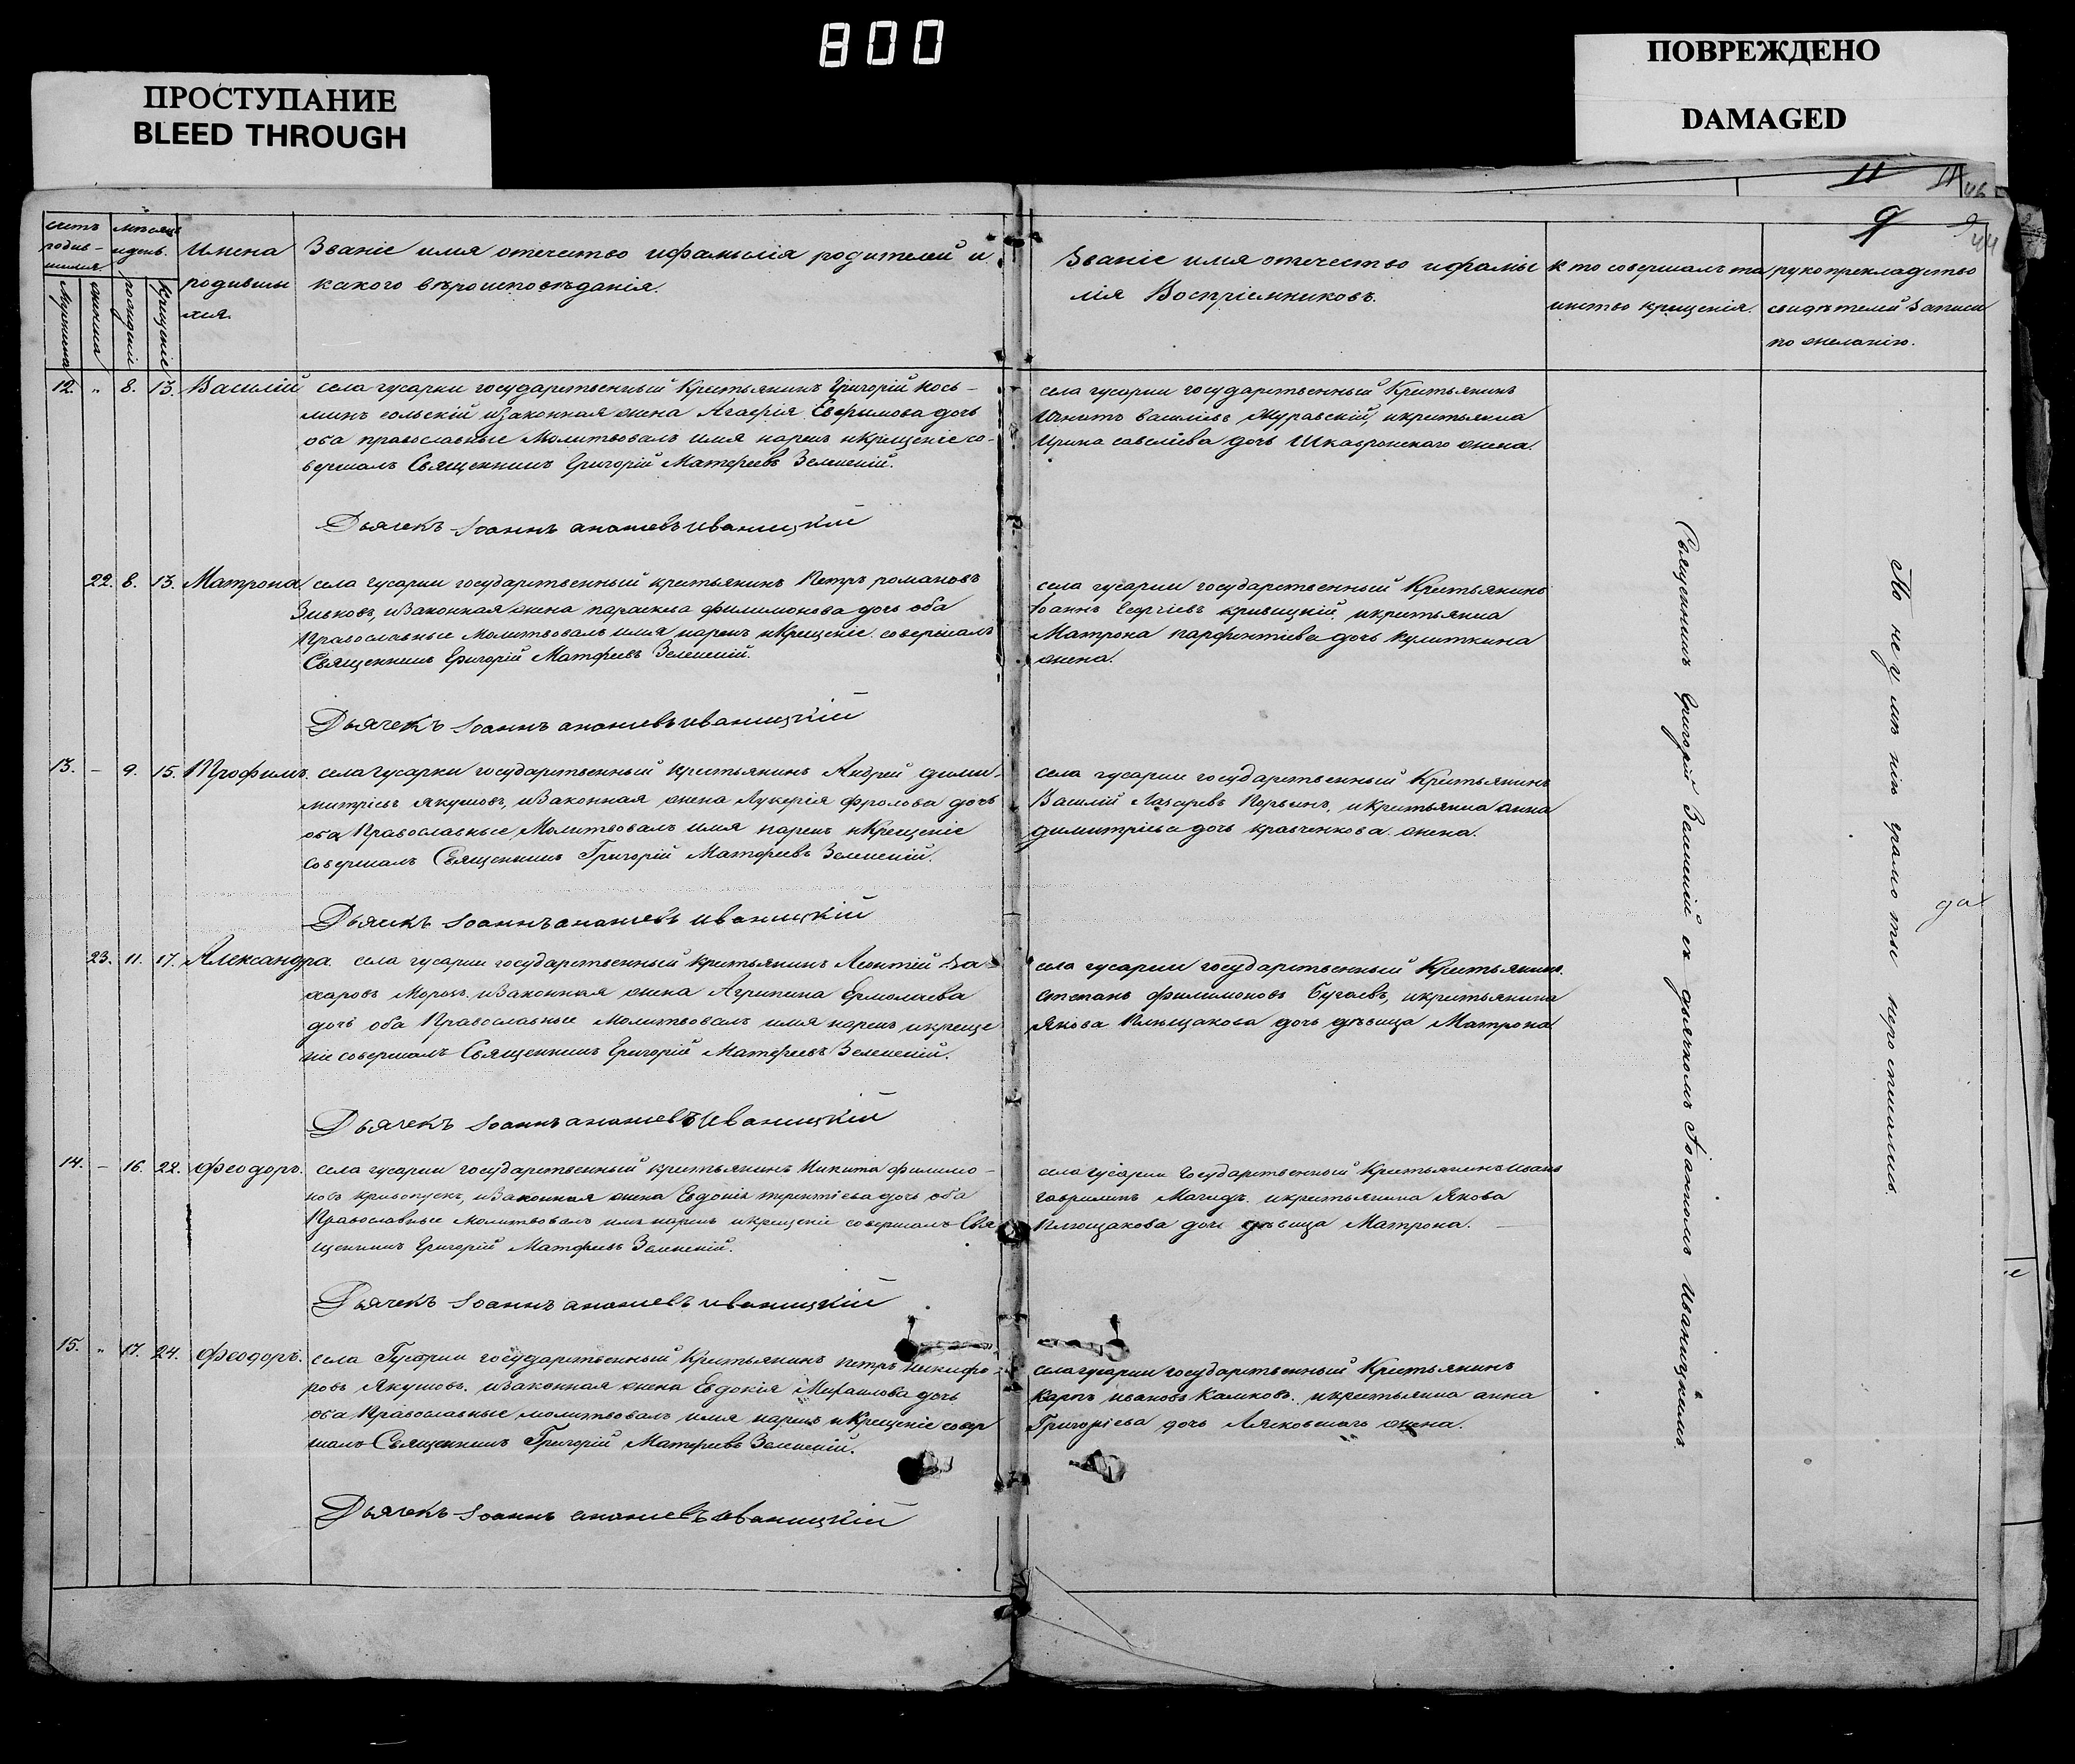 800
ПРОСТУПАНИЕ
BLEED THROUGH
ПОВРЕЖДЕНО
DAMAGED
11
46
9
44
счетъ родив-шихся.
мѣсяцъ идень.
Имена родившихся.
Званіе имя отечество ифамилія родителей и
какого вѣроисповѣданія.
Званіе имя отечество ифамилія Воспріемниковъ.
кто совершалъ таинство крещенія.
рукоприкладство
свидѣтелей записи
по желанію.
рожденіе
Крещеніе
12. „ 8. 13. Василій села гусарки государственный Крестьянинъ Григорій Кось-
минъ сольскій изаконная жена Агафія Евфимова дочь
оба православные Молитвовалъ имя нарекъ иКрещеніе со-
вершалъ Священникъ Григорій Матфеевъ Зеленскій.
Дьячекъ Іоаннъ ананіевъ иваницкій
села гусарки государственный Крестьянинъ
Игнатъ василіевъ Журавскій, икрестьянка
Ирина савеліева дочь жена.
22. 8. 13. Матрона. села гусарки государственный крестьянинъ Петръ романовъ
Зиьковъ, изаконная жена параскева филимонова дочь оба
Православные молитвовалъ имя нарекъ иКрещеніе совершалъ
Священникъ Григорій Матфеевъ Зеленскій.
Дьячекъ Іоаннъ ананіевъ иваницкій
села гусарки государственный Крестьянинъ
Іоаннъ Георгіевъ кривицкій, икрестьянка
Матрона парфентіева дочь кулиткина
жена.
13. – 9. 15. Трофимъ. села гусарки государственный крестьянинъ Андрей дими-
митріевъ якушовъ, изаконная жена Лукерія фролова дочь
оба Православные Молитвовалъ имя нарекъ иКрещеніе
совершалъ Священникъ Григорій Матфеевъ Зеленскій.
Дьячекъ Іоаннъ ананіевъ иваницкій
села гусарки государственный Крестьянинъ
Василій Лазаревъ икрестьянка анна
димитріева дочь кравченкова жена.
23. 11. 17. Александра. села гусарки государственный крестьянинъ Леонтій За-
харовъ Морозъ, изаконная жена Агрипина Ермолаева
дочь оба Православные Молитвовалъ имя нарекъ икреще
ніе совершалъ Священникъ Григорій Матфеевъ Зеленскій.
Дьячекъ Іоаннъ ананіевъ иваницкій
села гусарки государственный Крестьянинъ
степанъ филимоновъ Бугаевъ, икрестьянина
Якова Плющакова дочь дѣвица Матрона
14. – 16. 22. Феодоръ. села гусарки государственный крестьянинъ Никита филимо-
новъ кривопускъ, изаконная жена Евдокія терентіева дочь оба
Православные молитвовалъ имя нарекъ икрещеніе совершалъ Свя
щенникъ Григорій Матфеевъ Зеленскій.
Дьячекъ Іоаннъ ананіевъ иваницкій
села гусарки Государственный Крестьянинъ Иванъ
гавриловъ икрестьянина Якова
Плющакова дочь дѣвица Матрона. –
15. „ 17. 24. Феодоръ. села Гусарки государственный Крестьянинъ петръ никифо-
ровъ Якушовъ. изаконная жена Евдокія Михаилова дочь
оба Православные молитвовалъ имя нарекъ иКрещеніе совер
шалъ Священникъ Григорій Матфеевъ Зеленскій.
Дьячекъ Іоаннъ ананіевъ иваницкій
села гусарки государственный Крестьянинъ
карпъ ивановъ Калиновъ. икрестьянка анна
Григоріева дочь жена.
Священникъ Григорій Зеленскій съ дьячкомъ Іоанномъ Иваницкимъ.
По не умѣнію грамоты нероспишались.
да